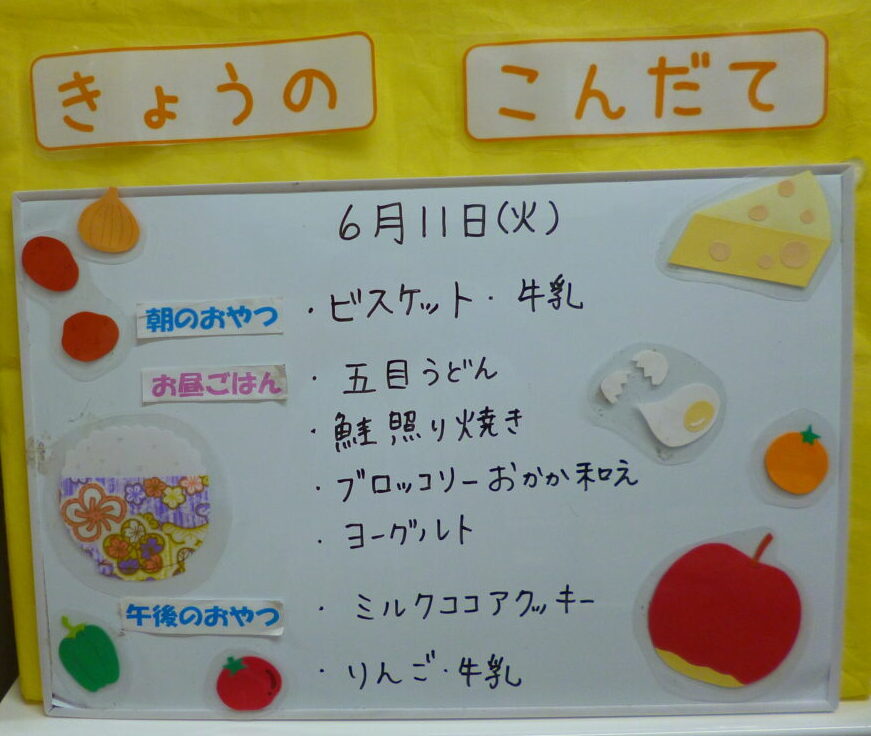 きょうの こんだて
6月11日(火)
朝のおやつ ・ビスケット・牛乳
お昼ごはん ・五目うどん
・鮭照り焼き
・ブロッコリーおかか和え
・ヨーグルト
午後のおやつ ・ミルクココアクッキー
・りんご・牛乳